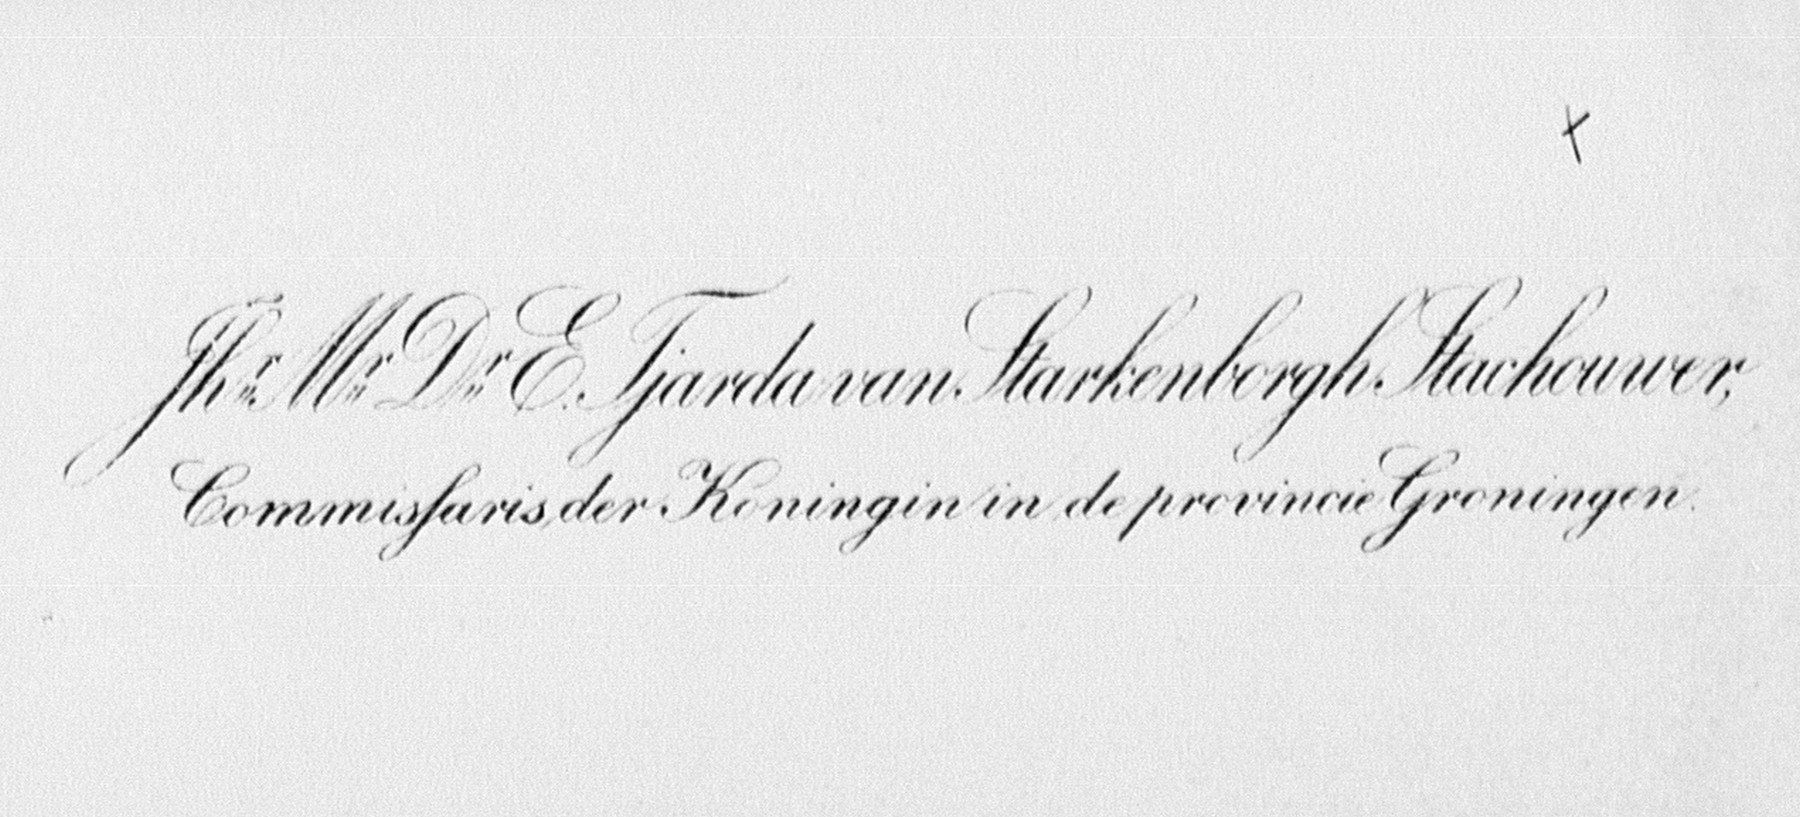 Jhr. Mr. Dr. E. Tjarda van Starkenborgh Stachouwer,
Commissaris der Koningin in de provincie Groningen.